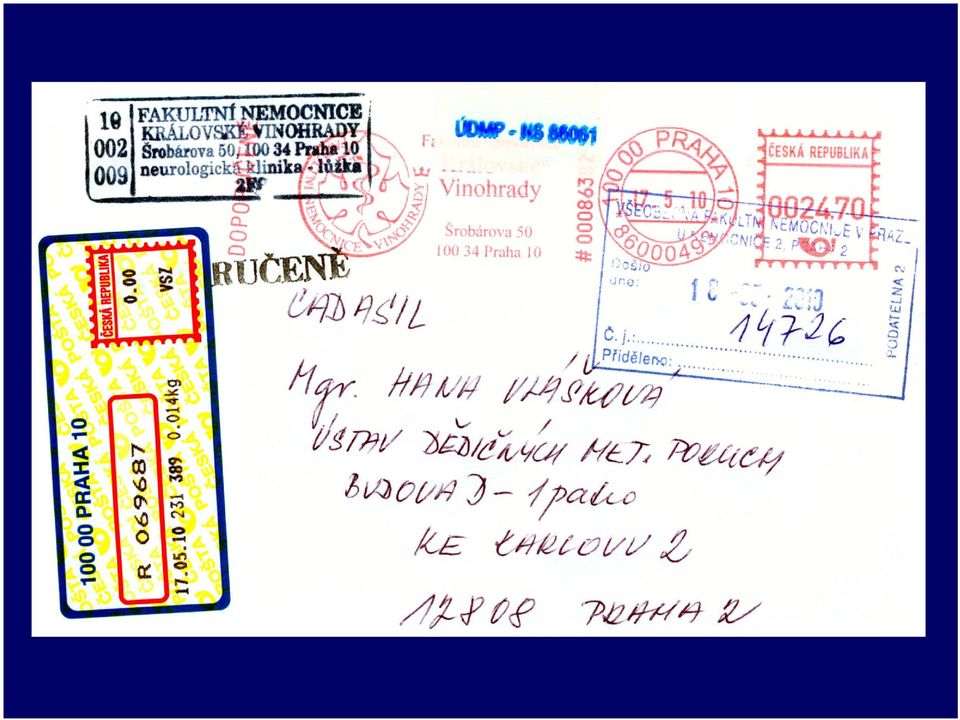 19
002
009
FAKULTNÍ NEMOCNICE
KRÁLOVSKÉ VINOHRADY
Šrobárova 50, 100 34 Praha 10
neurologická klinika - lůžka
DOPORUČENĚ
NEMOCNICE VINOHRADY
Královské
Vinohrady
Šrobárova 50
100 34 Praha 10
ÚDMP - NS 86061
# 000863
100 00 PRAHA 10
17. 5. 10
8600049
ČESKÁ REPUBLIKA
0024.70
VŠEOBECNÁ FAKULTNÍ NEMOCNICE V PRAZE
U NEMOCNICE 2, PRAHA 2
Došlo
dne: 18 -05- 2010
Č. j.: 14726
Přiděleno:
PODATELNA 2
ČESKÁ REPUBLIKA
0.00
VSZ
ČESKÁ POŠTA
100 00 PRAHA 10
R 069687
17.05.10 231 389 0.014kg
CADASIL
Mgr. HANA VLÁŠKOVÁ
ÚSTAV DĚDIČNÝCH MET. PORUCH
BUDOVA D - 1 patro
KE KARLOVU 2
12808 PRAHA 2